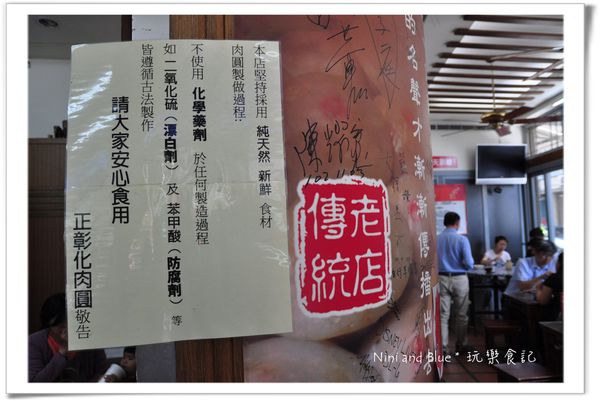 本店堅持採用 純天然 新鮮 食材
肉圓製做過程:
不使用 化學藥劑 於任何製造過程
如 二氧化硫(漂白劑) 及 苯甲酸(防腐劑) 等
皆遵循古法製作
請大家安心食用
正彰化肉圓 敬告
老店
傳統
的名聲才漸漸傳播出
Nini and Blue* 玩樂食記